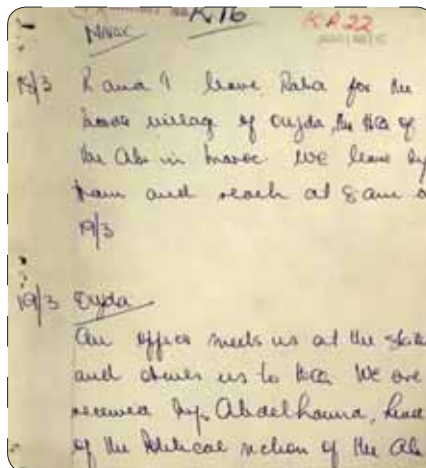 K16
KA22
Maroc
18/3 R and I leave Raba for the
border village of Oujda, the HQ of
the ALN in Maroc. We leave by
train and reach at 8 am
19/3
19/3 Oujda
An officer meets us at the stat
and drives us to HQ. We are
received by Head
of the Political section of the ALN